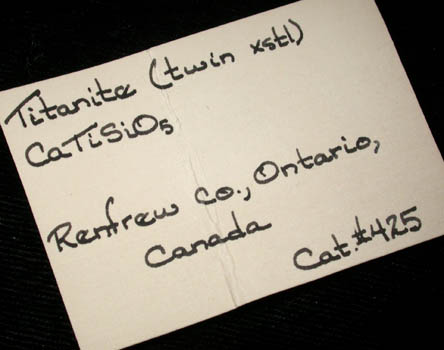 Titanite (twin xstl)
CaTiSiO5
Renfrew Co., Ontario,
Canada
Cat.#425